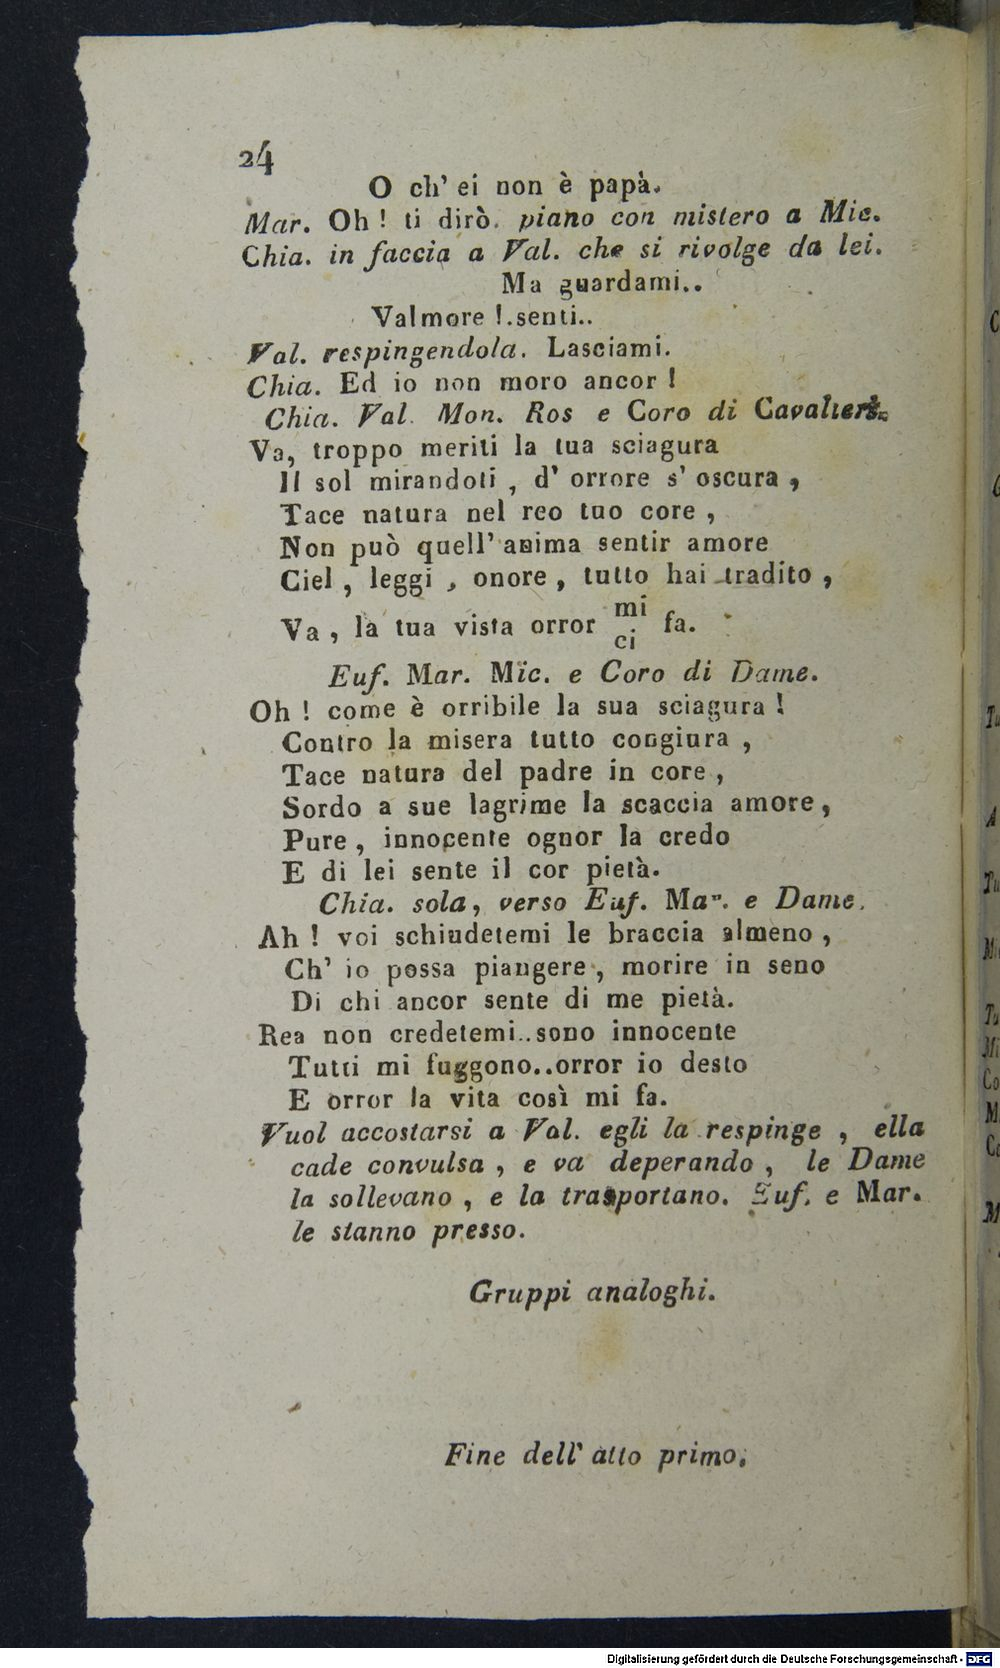 24
O ch' ei non è papà.
Mar. Oh ! ti dirò. piano con mistero a Mic.
Chia. in faccia a Val. che si rivolge da lei.
Ma guardami..
Valmore !.senti..
Val. respingendola. Lasciami.
Chia. Ed io non moro ancor !
Chia. Val. Mon. Ros e Coro di Cavalieri.
Va, troppo meriti la tua sciagura
Il sol mirandoti , d' orrore s' oscura ,
Tace natura nel reo tuo core ,
Non può quell' anima sentir amore
Ciel , leggi , onore , tutto hai tradito ,
mi
Va , la tua vista orror . fa.
ci
Euf. Mar. Mic. e Coro di Dame.
Oh ! come è orribile la sua sciagura !
Contro la misera tutto congiura ,
Tace natura del padre in core ,
Sordo a sue lagrime la scaccia amore ,
Pure , innocente ognor la credo
E di lei sente il cor pietà.
Chia. sola, verso Euf. Mar. e Dame.
Ah ! voi schiudetemi le braccia almeno ,
Ch' io possa piangere , morire in seno
Di chi ancor sente di me pietà.
Rea non credetemi..sono innocente
Tutti mi fuggono..orror io desto
E orror la vita così mi fa.
Vuol accostarsi a Val. egli la respinge , ella
cade convulsa , e va deperando , le Dame
la sollevano , e la trasportano. Euf. e Mar.
le stanno presso.
Gruppi analoghi.
Fine dell' atto primo.
C
Tu
A
Tu
Mi
Tu
Mi
Co
M
Co
M
Digitalisierung gefördert durch die Deutsche Forschungsgemeinschaft - DFG